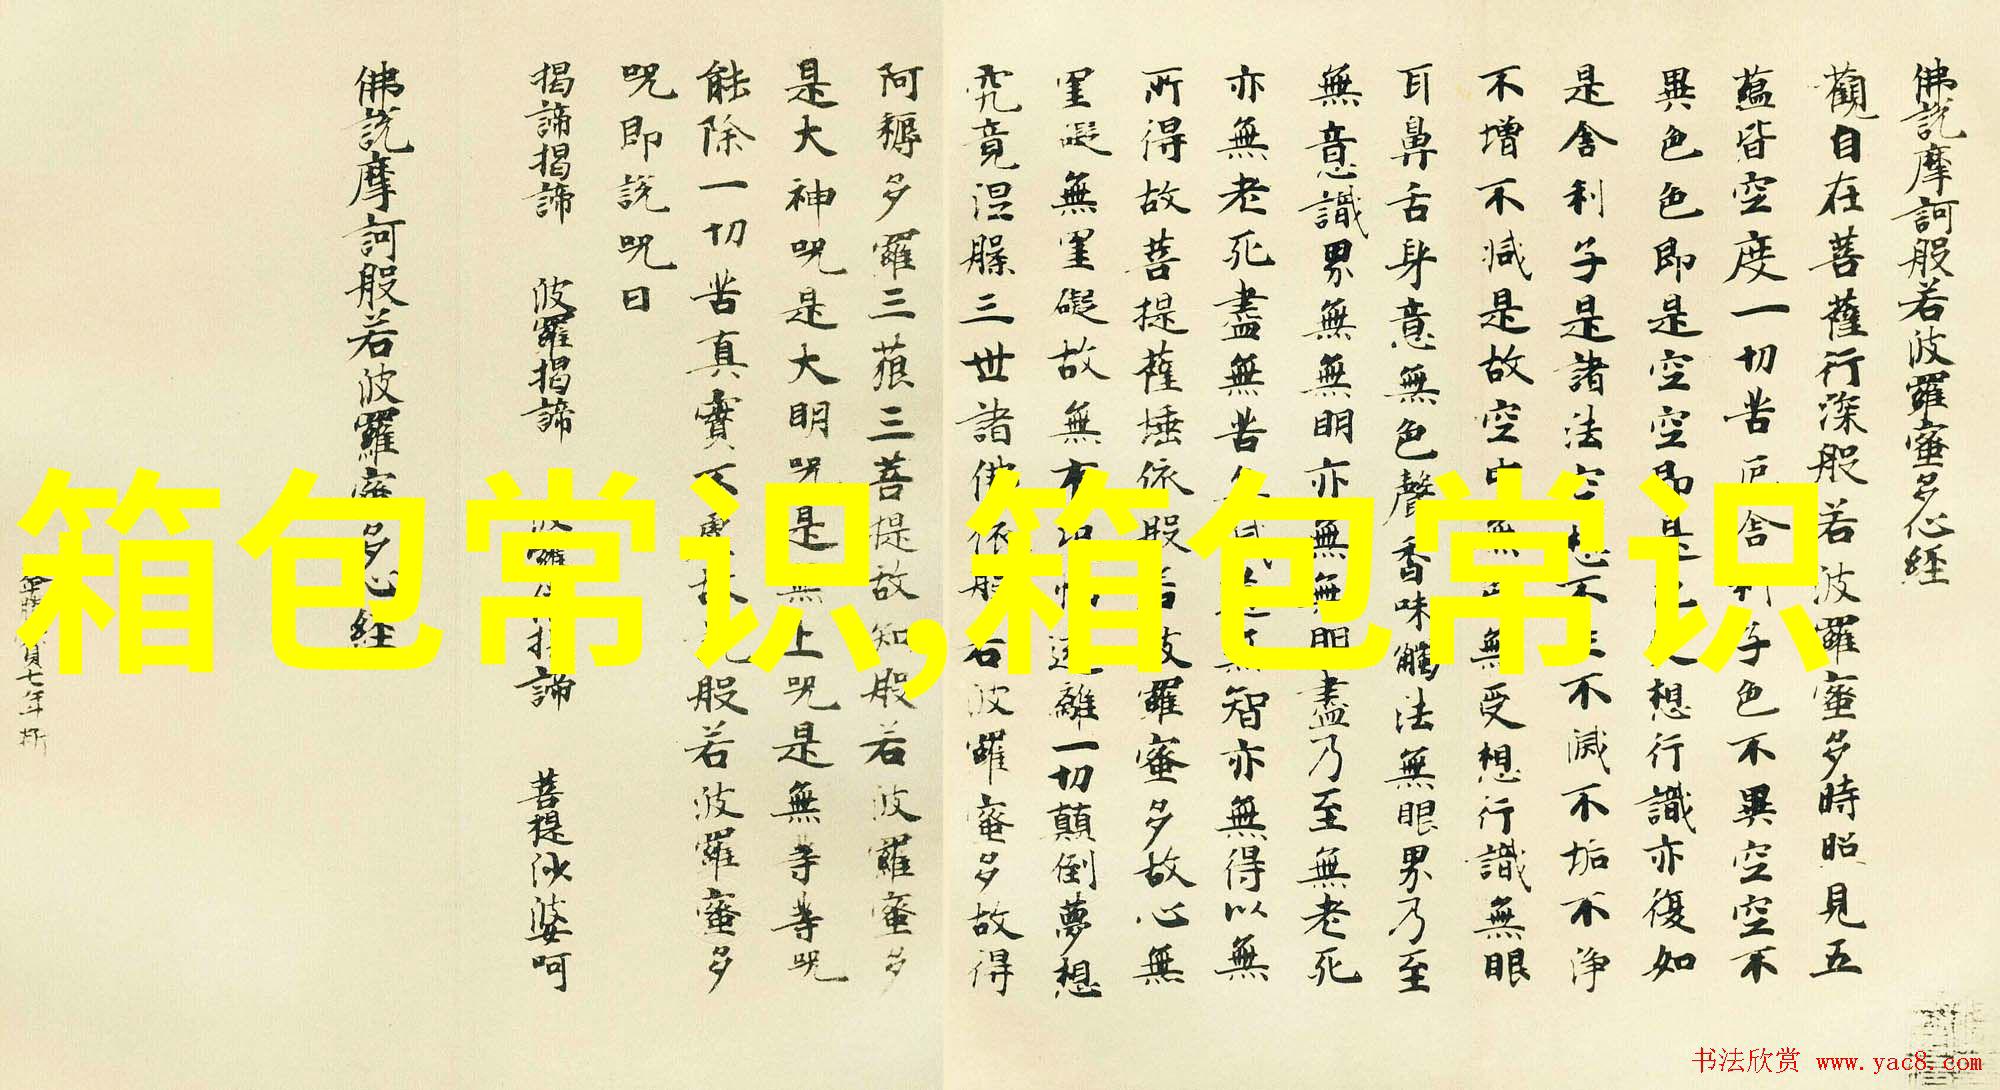 佛說摩訶般若波羅蜜多心經
觀自在菩薩行深般若波羅蜜多時照見五
蘊皆空度一切苦厄舍利子色不異空空不
異色色即是空空即是色受想行識亦復如
是舍利子是諸法空想不生不滅不垢不净
不增不減是故空中無色無受想行識無眼
耳鼻舌身意無色聲香味觸法無眼界乃至
無意識界無無明亦無無明盡乃至無老死
亦無老死盡無苦集滅道無智亦無得以無
所得故菩提薩埵依般若波羅蜜多故心無
罣礙無罣礙故無有恐怖遠離一切顛倒夢想
究竟涅槃三世諸佛依般若波羅蜜多故得
阿耨多羅三藐三菩提故知般若波羅蜜多
是大神咒是大明咒是無上咒是無等等咒
能除一切苦真實不虛故說般若波羅蜜多
咒即說咒曰
揭諦揭諦 波羅揭諦 波羅僧揭諦 菩提沙婆呵
佛說摩訶般若波羅蜜多心經
箱包常识,箱包常识
书法欣赏 www.yac8.com